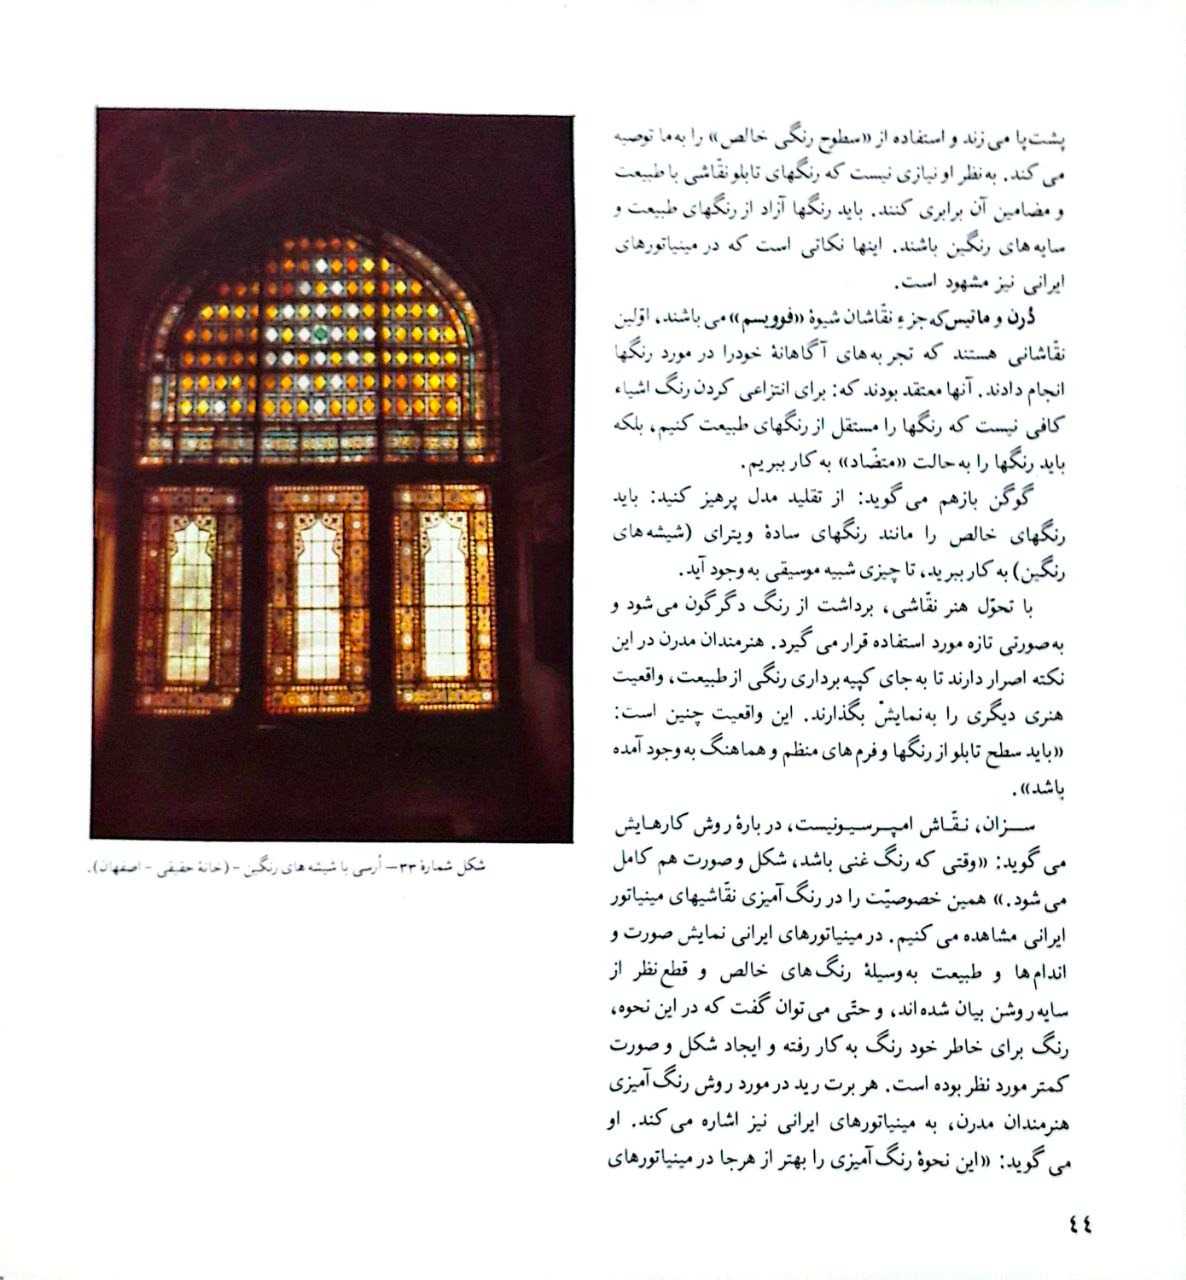 پشت‌پا می‌زند و استفاده از «سطوح رنگی خالص» را به‌ما توصیه
می‌کند. به‌نظر او نیازی نیست که رنگهای تابلو نقّاشی با طبیعت
و مضامین آن برابری کنند. باید رنگها آزاد از رنگهای طبیعت و
سایه‌های رنگین باشند. اینها نکاتی است که در مینیاتورهای
ایرانی نیز مشهود است.
دُرن و ماتیس که جزءِ نقّاشان شیوهٔ «فوویسم» می‌باشند، اوّلین
نقّاشانی هستند که تجربه‌های آگاهانهٔ خود را در مورد رنگها
انجام دادند. آنها معتقد بودند که: برای انتزاعی کردن رنگ اشیاء
کافی نیست که رنگها را مستقل از رنگهای طبیعت کنیم، بلکه
باید رنگها را به‌حالت «متضّاد» به‌کار ببریم.
گوگن بازهم می‌گوید: از تقلید مدل پرهیز کنید: باید
رنگهای خالص را مانند رنگهای سادهٔ ویترای (شیشه‌های
رنگین) به‌کار ببرید، تا چیزی شبیه موسیقی به‌وجود آید.
با تحوّل هنر نقّاشی، برداشت از رنگ دگرگون می‌شود و
به‌صورتی تازه مورد استفاده قرار می‌گیرد. هنرمندان مدرن در این
نکته اصرار دارند تا به‌جای کپیه‌برداری رنگی از طبیعت، واقعیت
هنری دیگری را به‌نمایش بگذارند. این واقعیت چنین است:
«باید سطح تابلو از رنگها و فرم‌های منظم و هماهنگ به‌وجود آمده
باشد».
ســزان، نـقّـاش امـپـرسـیـونـیست، در بارهٔ روش کارهـایش
می‌گوید: «وقتی که رنگ غنی باشد، شکل و صورت هم کامل
می‌شود.» همین خصوصیّت را در رنگ‌آمیزی نقّاشیهای مینیاتور
ایرانی مشاهده می‌کنیم. در مینیاتورهای ایرانی نمایش صورت و
اندام‌ها و طبیعت به‌وسیلهٔ رنگ‌های خالص و قطع‌نظر از
سایه‌روشن بیان شده‌اند، و حتّی می‌توان گفت که در این نحوه،
رنگ برای خاطر خود رنگ به‌کار رفته و ایجاد شکل و صورت
کمتر مورد نظر بوده است. هربرت رید در مورد روش رنگ‌آمیزی
هنرمندان مدرن، به مینیاتورهای ایرانی نیز اشاره می‌کند. او
می‌گوید: «این نحوهٔ رنگ‌آمیزی را بهتر از هرجا در مینیاتورهای
شکل شمارهٔ ۳۳— اُرسی با شیشه‌های رنگین - (خانهٔ حقیقی - اصفهان).
٤٤